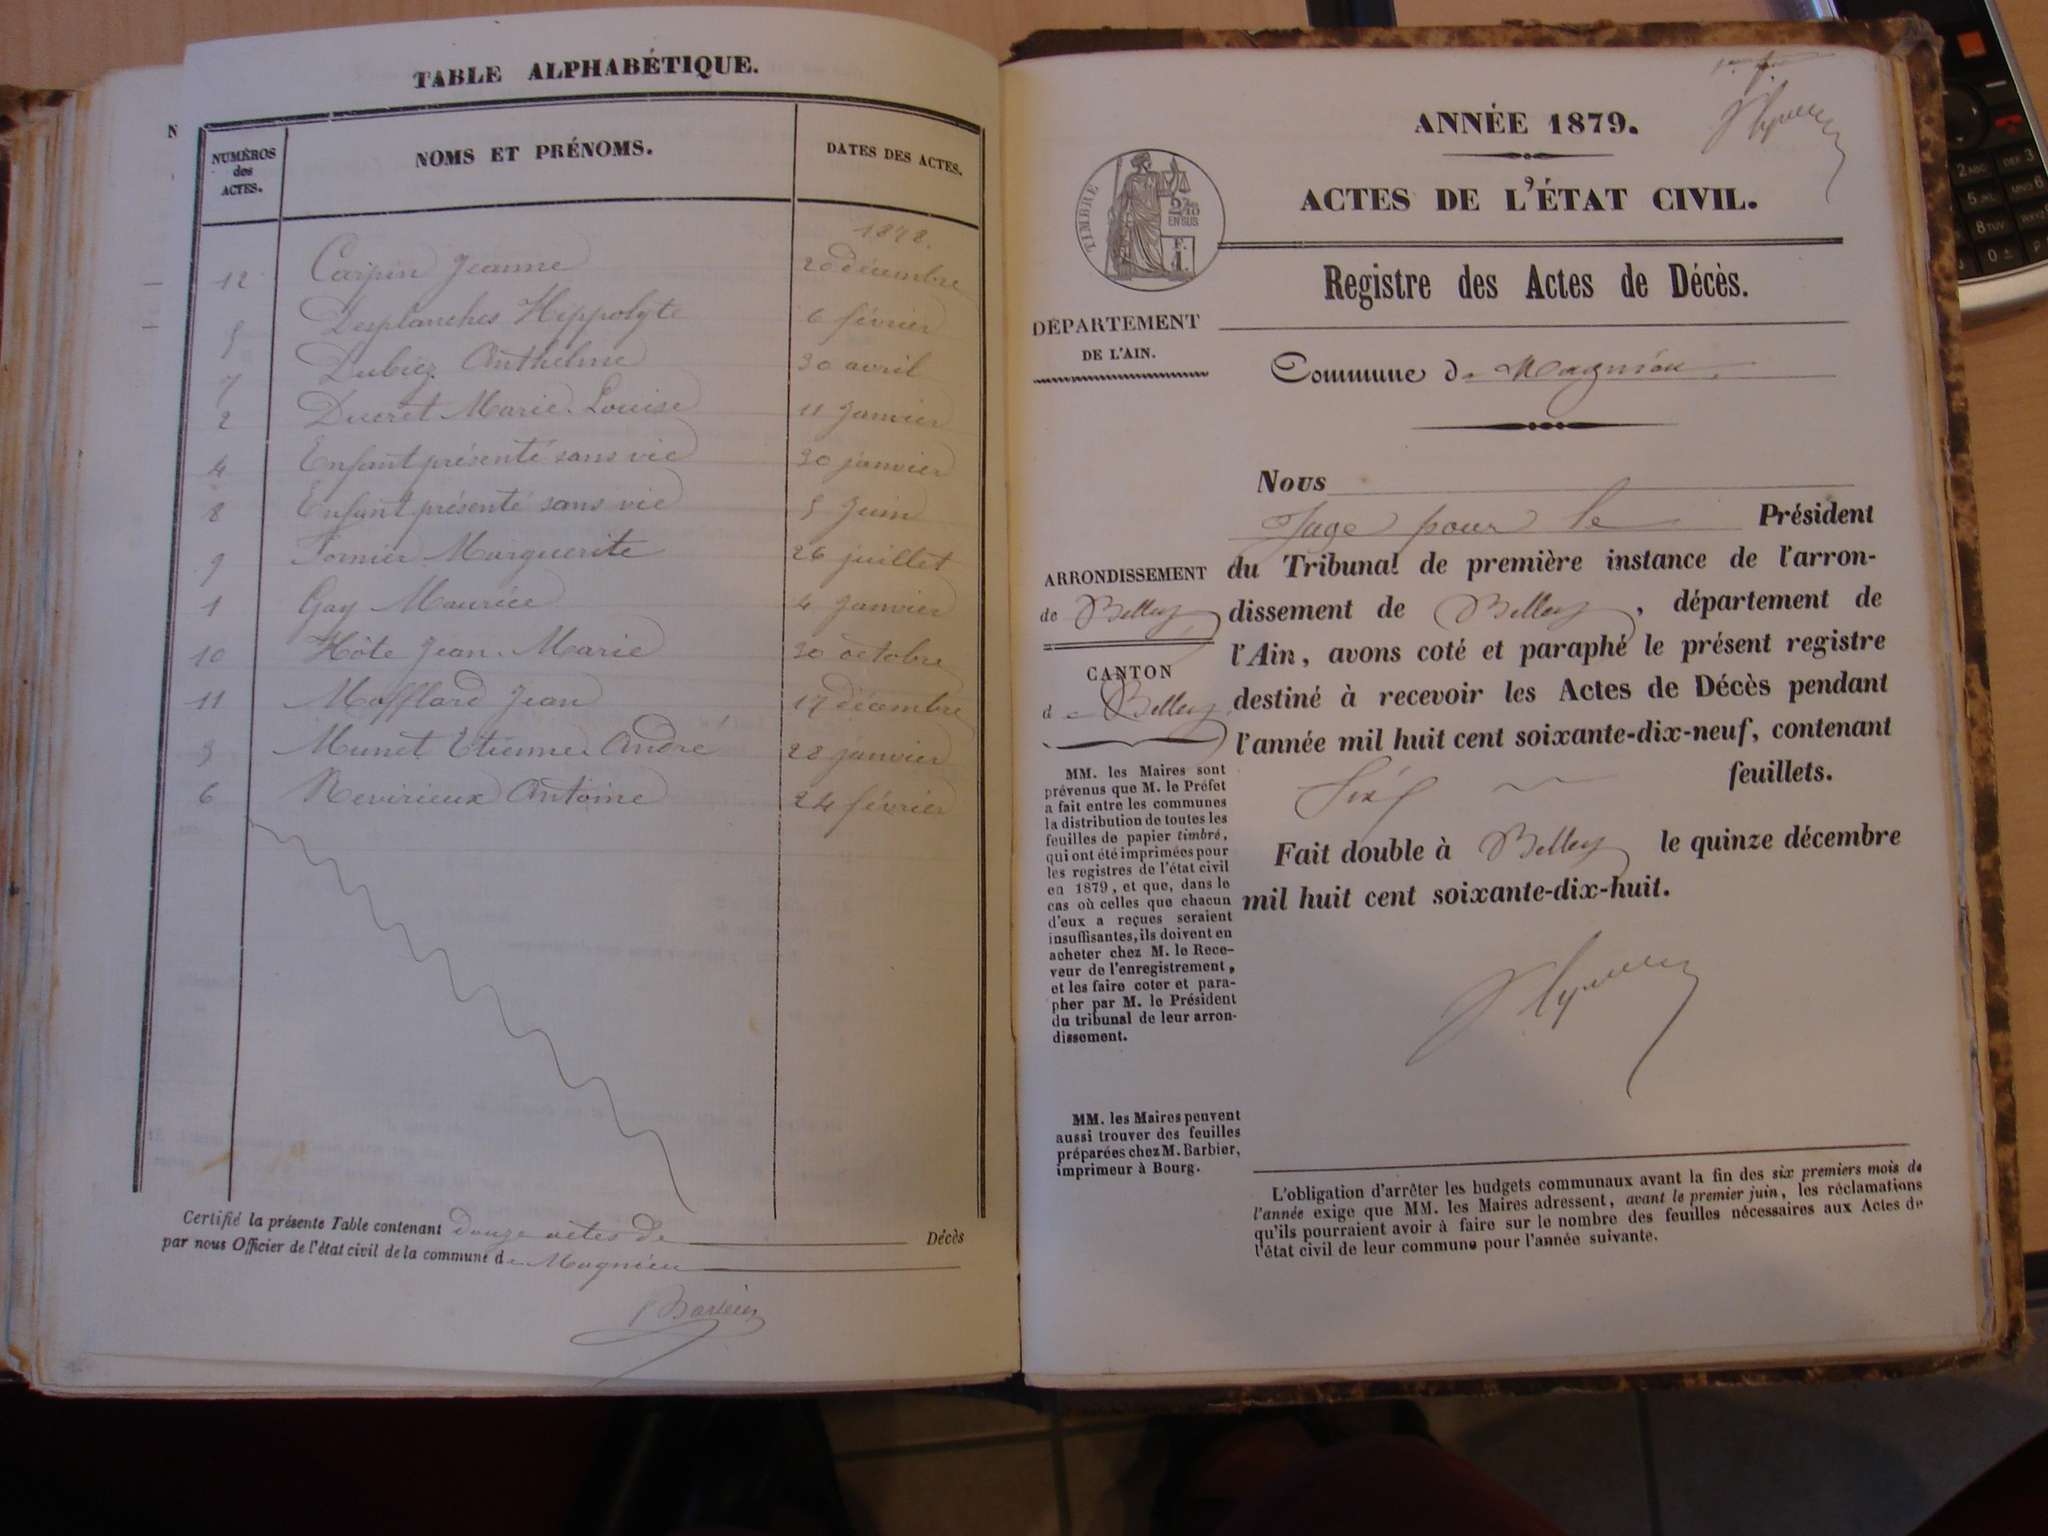 TABLE ALPHABÉTIQUE.
NUMÉROS des ACTES.
NOMS ET PRÉNOMS.
DATES DES ACTES.
1878.
12 Carpin Jeanne 20 décembre
5 Desplanches Hippolyte 6 février
7 Dubiez Anthelme 30 avril
2 Ducret Marie Louise 11 Janvier
4 Enfant présenté sans vie 30 janvier
8 Enfant présenté sans vie 5 Juin
9 Fornier Marguerite 26 juillet
1 Gay Maurice 4 Janvier
10 Hôte Jean Marie 30 octobre
11 Mafflard Jean 17 décembre
3 Munet Etienne André 28 janvier
6 Revirieux Antoine 24 février
Certifié la présente Table contenant douze actes de Décès
par nous Officier de l'état civil de la commune de Magnieu
Barbier
ANNÉE 1879.
ACTES DE L'ÉTAT CIVIL.
TIMBRE
2/10 EN SUS
F. 1.
Registre des Actes de Décès.
DÉPARTEMENT
DE L'AIN.
Commune de Magnieu.
Nous
Juge pour le Président
du Tribunal de première instance de l'arron-
dissement de Belley, département de
l'Ain, avons coté et paraphé le présent registre
destiné à recevoir les Actes de Décès pendant
l'année mil huit cent soixante-dix-neuf, contenant
Six feuillets.
Fait double à Belley le quinze décembre
mil huit cent soixante-dix-huit.
ARRONDISSEMENT
de Belley
CANTON
de Belley
MM. les Maires sont
prévenus que M. le Préfet
a fait entre les communes
la distribution de toutes les
feuilles de papier timbré,
qui ont été imprimées pour
les registres de l'état civil
en 1879, et que, dans le
cas où celles que chacun
d'eux a reçues seraient
insuffisantes, ils doivent en
acheter chez M. le Rece-
veur de l'enregistrement,
et les faire coter et para-
pher par M. le Président
du tribunal de leur arron-
dissement.
MM. les Maires peuvent
aussi trouver des feuilles
préparées chez M. Barbier,
imprimeur à Bourg.
L'obligation d'arrêter les budgets communaux avant la fin des six premiers mois de
l'année exige que MM. les Maires adressent, avant le premier juin, les réclamations
qu'ils pourraient avoir à faire sur le nombre des feuilles nécessaires aux Actes de
l'état civil de leur commune pour l'année suivante.